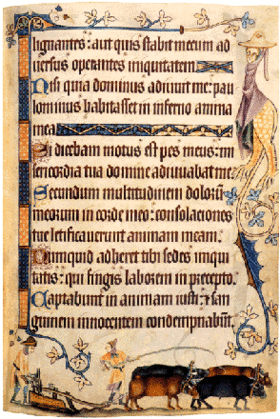 lignantes: aut quis stabit mecum ad
versus operantes iniquitatem.
Nisi quia dominus adiuvit me: pau
lominus habitasset in inferno anima
mea.
Si dicebam motus est pes meus: mi
sericordia tua domine adiuvabat me.
Secundum multitudinem dolorum
meorum in corde meo: consolaciones
tue letificaverunt animam meam.
Numquid adheret tibi sedes iniqui
tatis: qui fingis laborem in precepto.
Captabunt in animam iusti: et san
guinem innocentem condempnabunt.